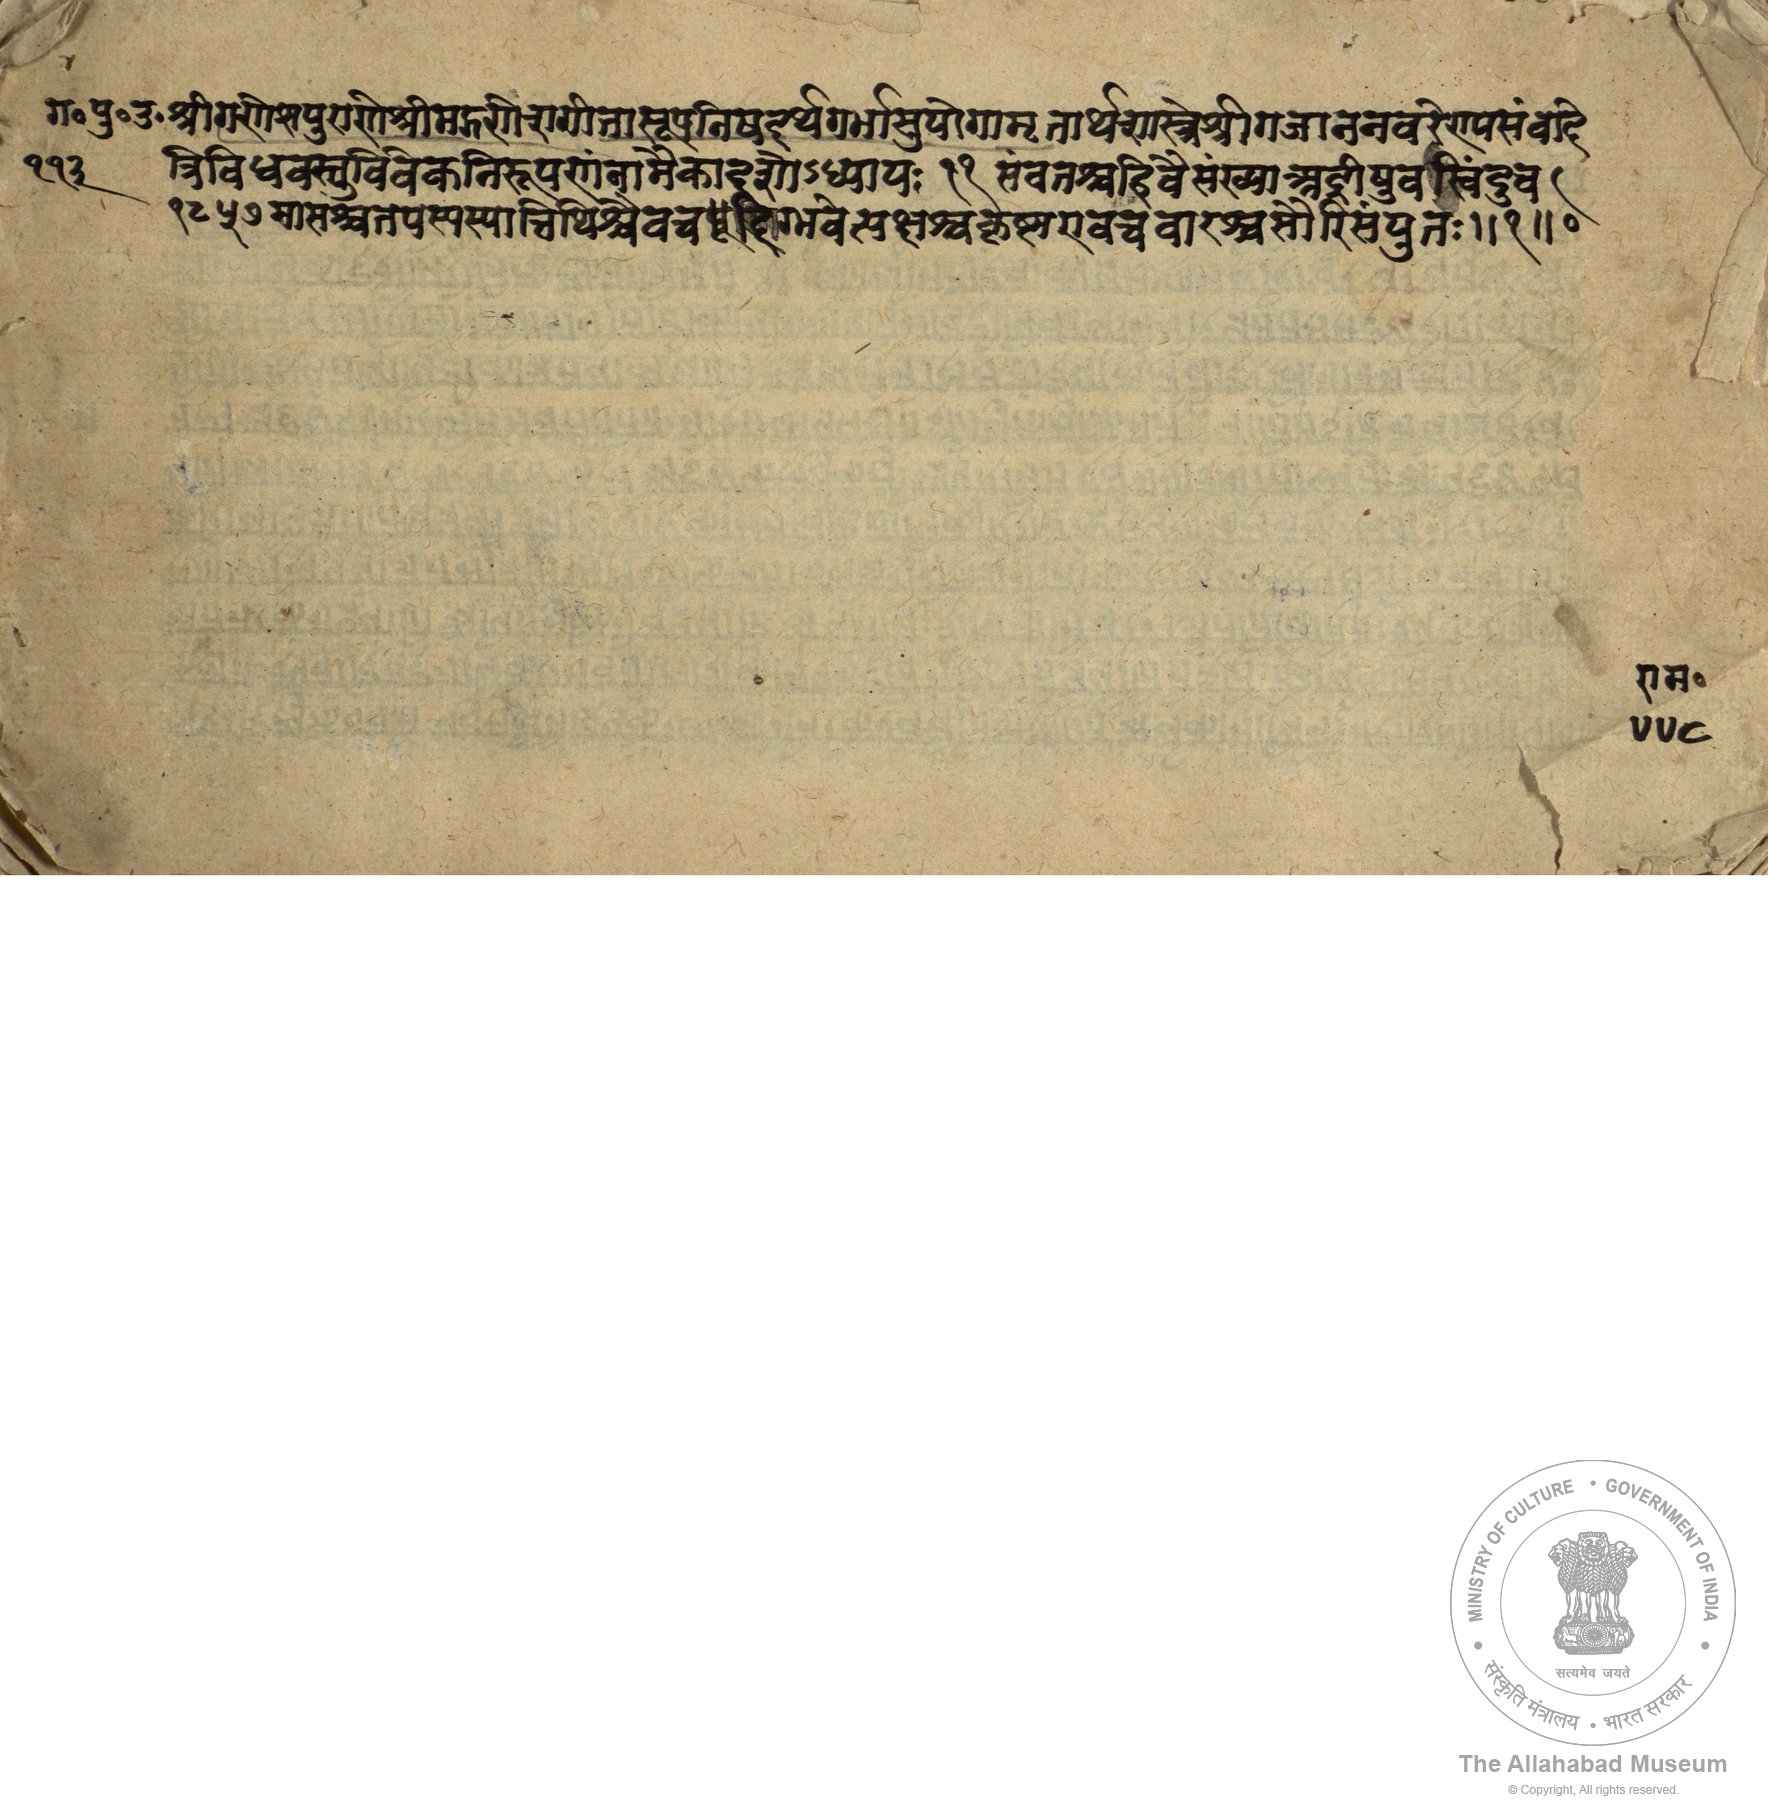 ग॰पु॰उ॰ श्रीगणेशपुराणेश्रीमद्गणेशगीतासूपनिषदर्थगर्भासुयोगामृतार्थशास्त्रेश्रीगजाननवरेण्यसंवादे
११३ त्रिविधवस्तुविवेकनिरूपणंनामैकादशोऽध्यायः ११ संवतश्चहिवैसंख्या
१८५७ मासश्चतपस्यस्यात्तिथिश्चैवच भवेत्पक्षश्चकृष्णएवचवारश्चसौरिसंयुतः ॥१॥०
राम॰
MINISTRY OF CULTURE • GOVERNMENT OF INDIA
सत्यमेव जयते
संस्कृति मंत्रालय • भारत सरकार
The Allahabad Museum
© Copyright, All rights reserved.